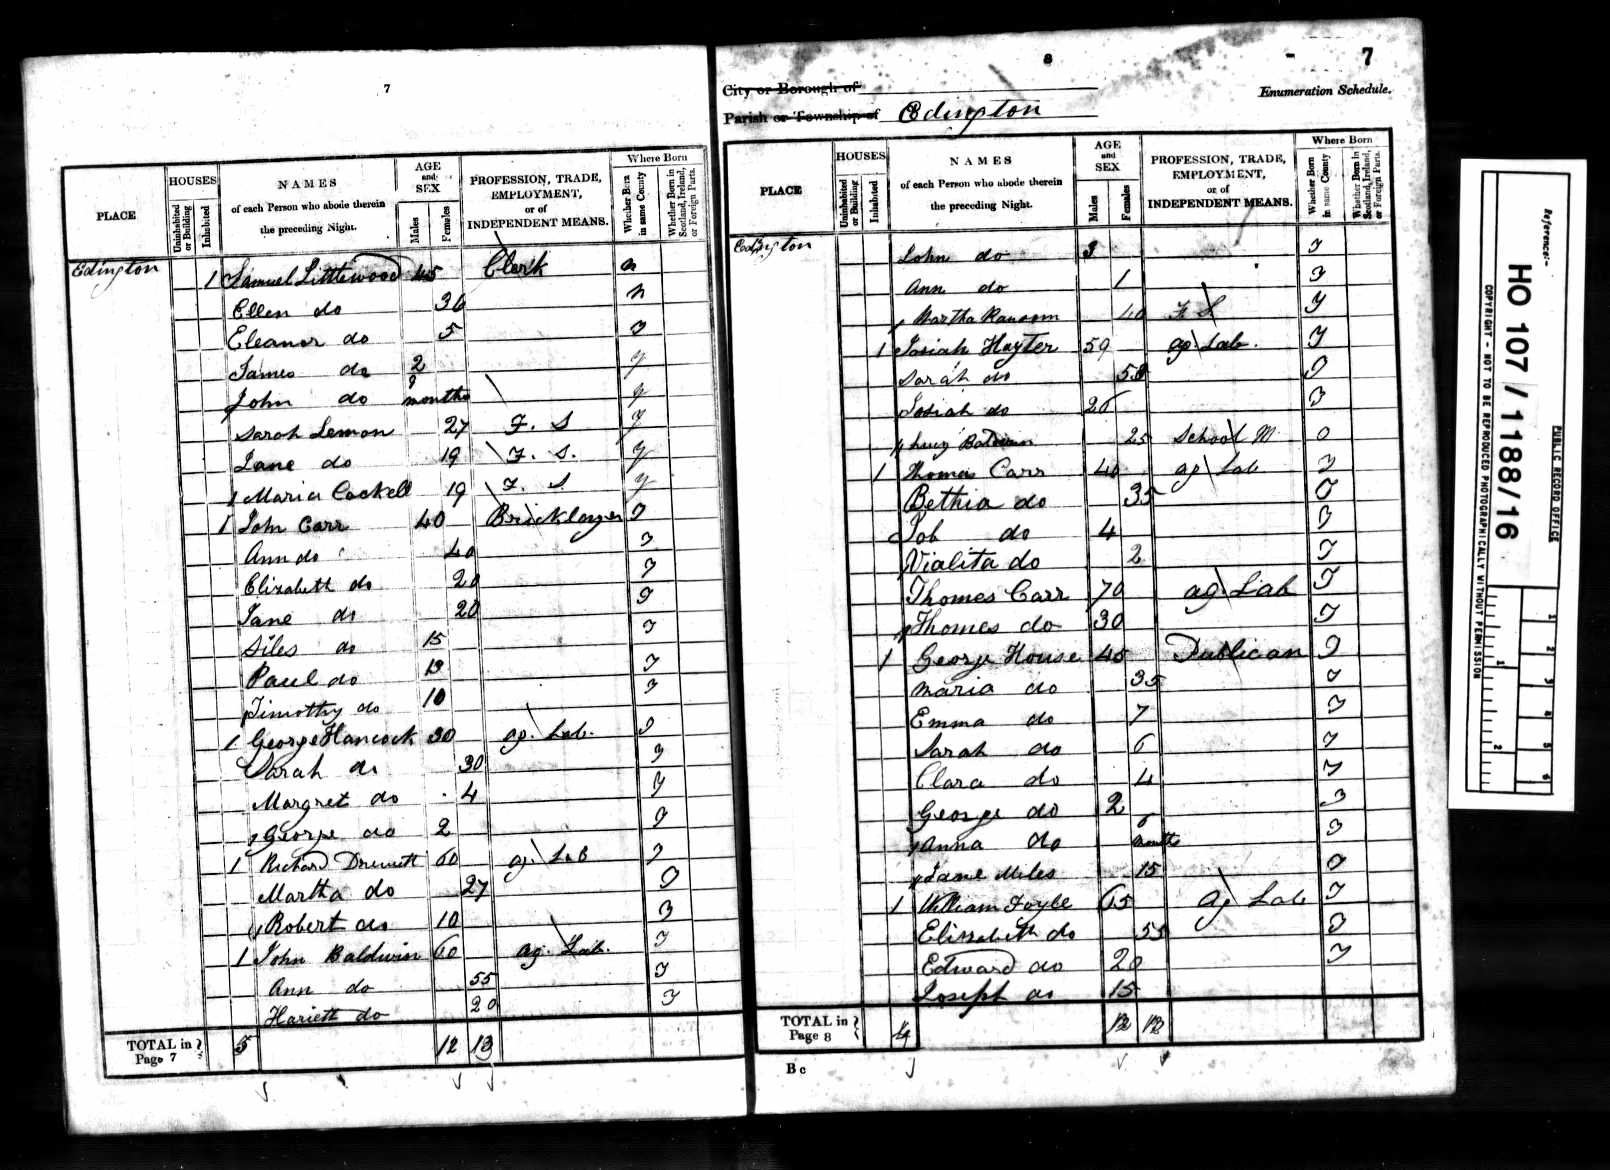 7
PLACE
HOUSES
Uninhabited or Building
Inhabited
NAMES
of each Person who abode therein
the preceding Night.
AGE
and
SEX
Males
Females
PROFESSION, TRADE,
EMPLOYMENT,
or of
INDEPENDENT MEANS.
Where Born
Whether Born in same County
Whether Born in Scotland, Ireland, or Foreign Parts.
Edington 1 Samuel Littlewood 45 Clerk n
Ellen do 36 n
Eleanor do 5 y
James do 2 y
John do 9 months y
Sarah Lemon 27 F. S y
Jane do 19 F. S. y
Maria Cockell 19 F. S y
1 John Carr 40 Bricklayer y
Ann do 40 y
Elizabeth do 20 y
Jane do 20 y
Siles do 15 y
Paul do 13 y
Timothy do 10 y
1 George Hancock 30 ag. Lab. y
Sarah do 30 y
Margret do 4 y
George do 2 y
1 Richard Drewett 60 ag. Lab y
Martha do 27 y
Robert do 10 y
1 John Baldwin 60 ag. Lab. y
Ann do 55 y
Hariett do 20 y
TOTAL in Page 7 5 12 13
8 - 7
City or Borough of
Enumeration Schedule.
Parish or Township of Edington
PLACE
HOUSES
Uninhabited or Building
Inhabited
NAMES
of each Person who abode therein
the preceding Night.
AGE
and
SEX
Males
Females
PROFESSION, TRADE,
EMPLOYMENT,
or of
INDEPENDENT MEANS.
Where Born
Whether Born in same County
Whether Born in Scotland, Ireland, or Foreign Parts.
Edington John do 3 y
Ann do 1 y
Martha Ransom 40 F S y
1 Josiah Hayter 59 ag. Lab. y
Sarah do 58 y
Josiah do 26 y
Lucy Baldwin 25 School M. y
1 Thomas Carr 40 ag Lab y
Bethia do 35 y
Job do 4 y
Vialita do 2 y
Thomes Carr 70 ag. Lab y
Thomes do 30 y
1 George House 45 Publican y
Maria do 35 y
Emma do 7 y
Sarah do 6 y
Clara do 4 y
George do 2 y
Anna do 6 months y
Jane Miles 15 y
1 William Foyle 65 Ag Lab y
Elizabeth do 55 y
Edward do 20 y
Joseph do 15
TOTAL in Page 8 4 12 13
B c
Reference:-
HO 107/1188/16
PUBLIC RECORD OFFICE
COPYRIGHT - NOT TO BE REPRODUCED PHOTOGRAPHICALLY WITHOUT PERMISSION
1
2
1 2 3 4 5 6